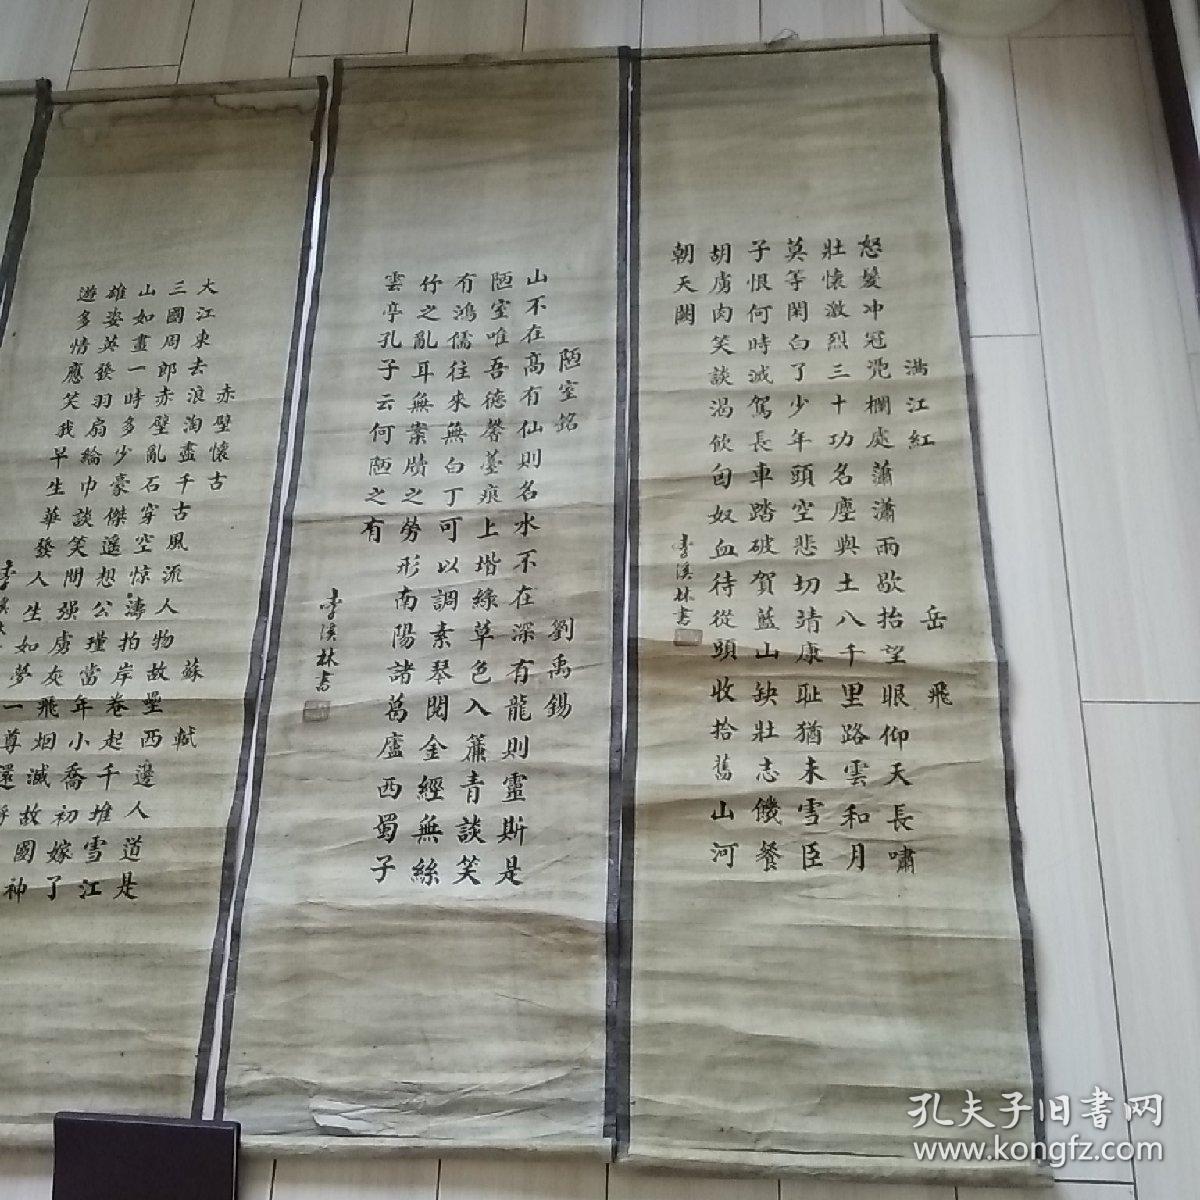 滿江紅 岳飛
怒髮冲冠凴欄處蕭瀟雨歇抬望眼仰天長嘯
壯懷激烈三十功名塵與土八千里路雲和月
莫等閑白了少年頭空悲切靖康耻猶未雪臣
子恨何時滅駕長車踏破賀藍山缺壯志饑餐
胡虜肉笑談渴飲匈奴血待從頭收拾舊山河
朝天闕
李溪林書
陋室銘 劉禹錫
山不在高有仙則名水不在深有龍則靈斯是
陋室唯吾德馨薹痕上堦綠草色入簾青談笑
有鴻儒往來無白丁可以調素琴閱金經無絲
竹之亂耳無案牘之勞形南陽諸葛廬西蜀子
雲亭孔子云何陋之有
李溪林書
赤壁懷古 蘇軾
大江東去浪淘盡千古風流人物故壘西邊人道是
三國周郎赤壁亂石穿空惊濤拍岸卷起千堆雪江
山如畫一時多少豪傑遥想公瑾當年小喬初嫁了
雄姿英發羽扇綸巾談笑間强虜灰飛烟滅故國神
遊多情應笑我早生華發人生如夢一尊還
李溪
孔夫子旧書网
www.kongfz.com